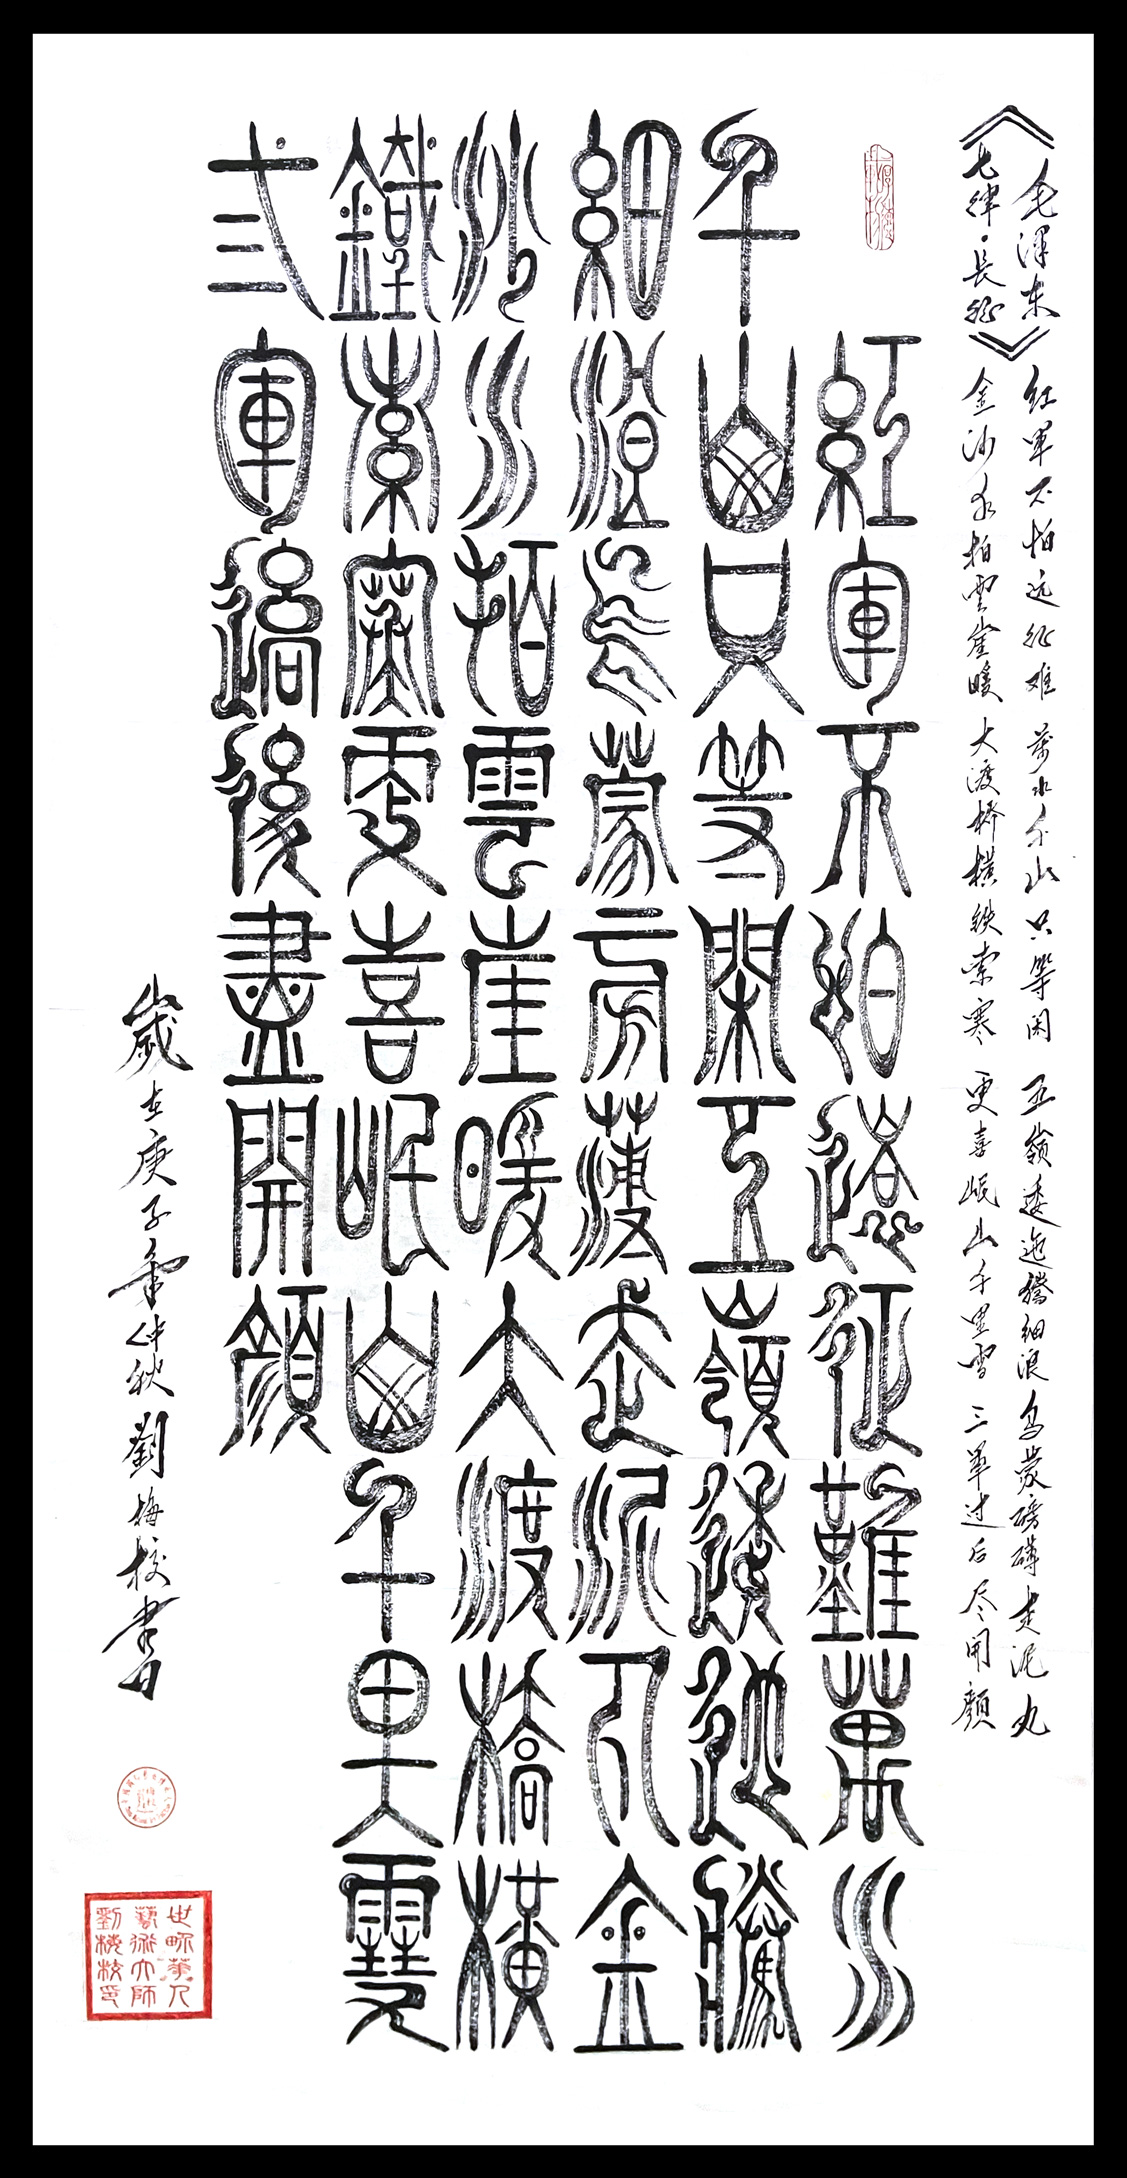 《毛泽东 红军不怕远征难 萬水千山只等闲 五嶺逶迤腾细浪 乌蒙磅礴走泥丸
七律·長征》 金沙水拍雲崖暖 大渡桥横铁索寒 更喜岷山千里雪 三军过后尽开颜
紅軍不怕遠征難萬水
千山只等閑五嶺逶迤騰
細浪烏蒙旁薄走泥丸金
沙水拍雲崖暖大渡橋橫
鐵索寒更喜岷山千里雪
弎軍過後盡開顏
歲在庚子年仲秋劉梅校書
世畍華人
藝術大師
劉梅校印